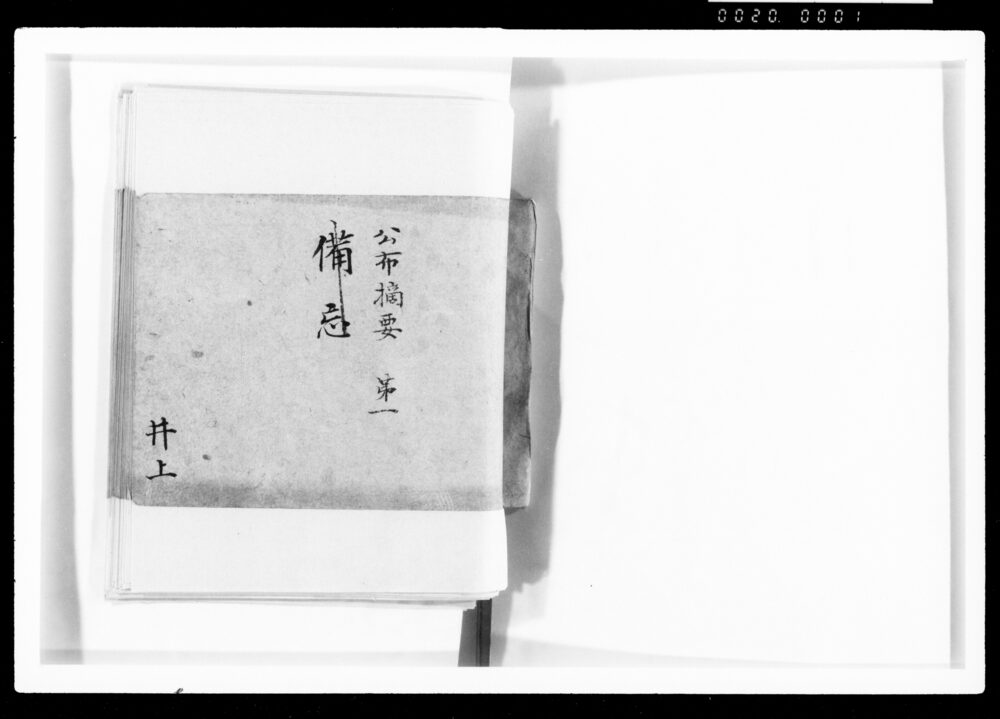 0020. 0001
公布摘要 第一
備忘
井上